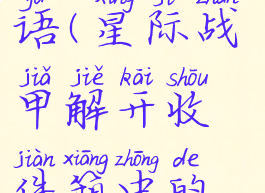 yǔ xīng jì zhàn
语(星际战
jiǎ jiě kāi shōu
甲解开收
jiàn xiāng zhōng de
件箱中的